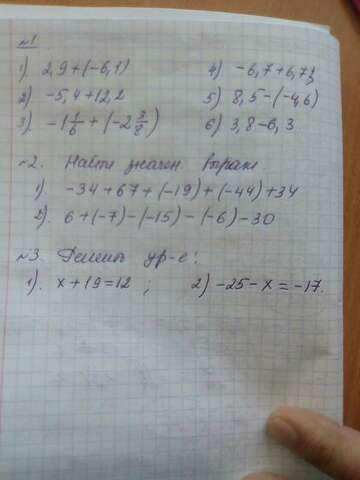 №1
1) 2,9+(-6,1)   4) -6,7+6,7;
2) -5,4+12,2   5) 8,5-(-4,6)
3) -1 1/6 + (-2 3/8)   6) 3,8-6,3
№2. Найти значен. выраж
1) -34+67+(-19)+(-44)+34
2). 6+(-7)-(-15)-(-6)-30
№3. Решить ур-е:
1). x+19=12 ;   2) -25-x=-17.